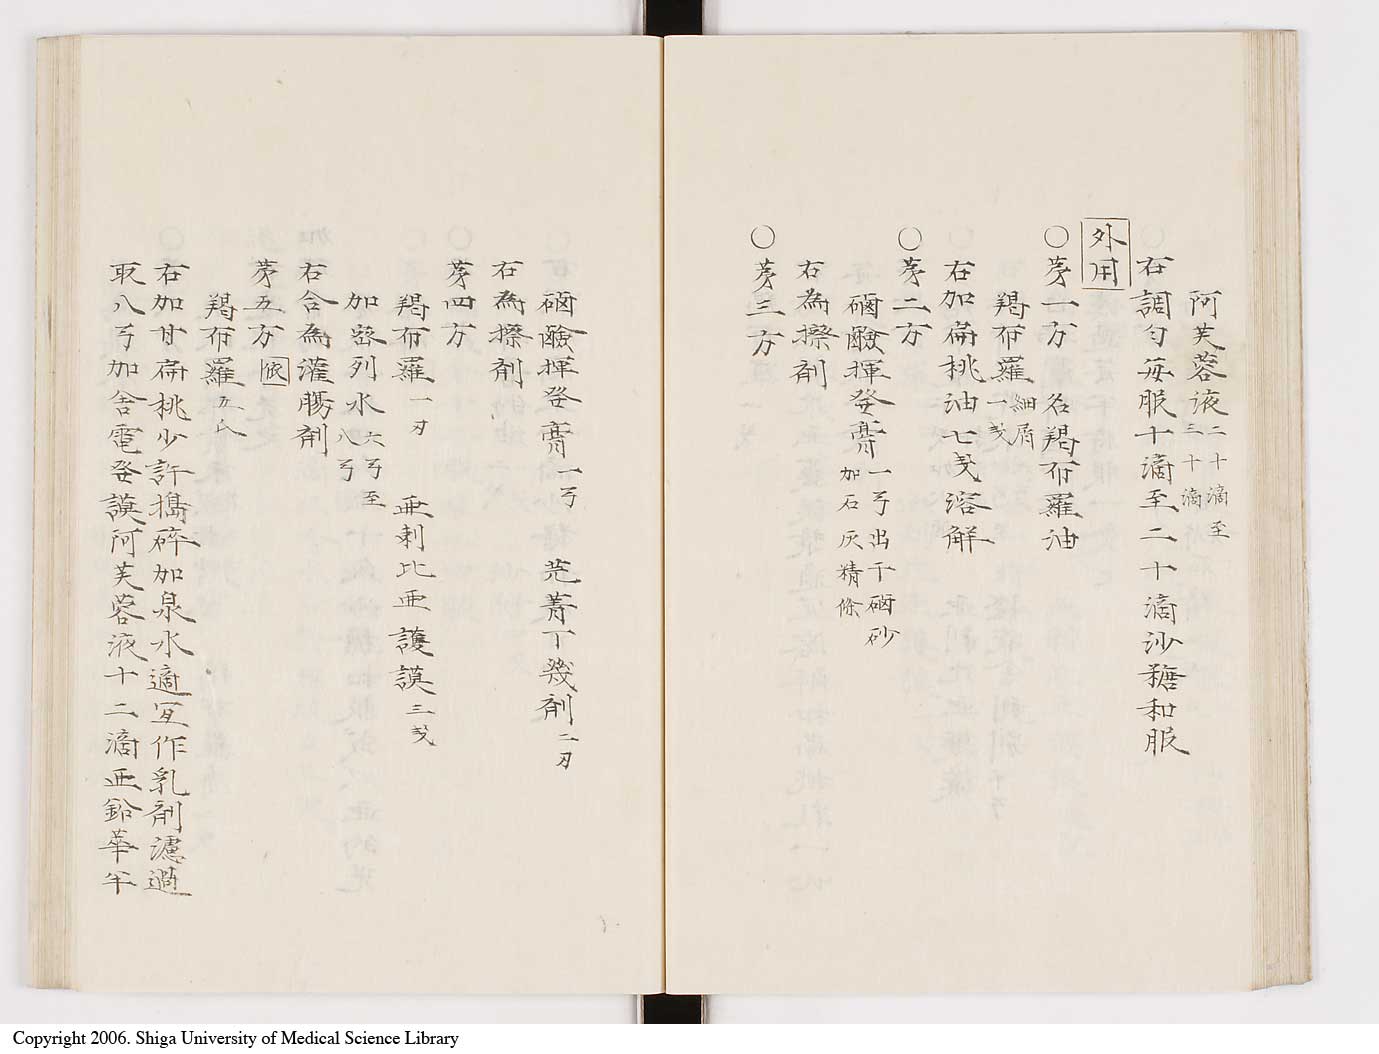 阿芙蓉液 二十滴至三十滴
右調勻毎服十滴至二十滴沙糖和服
外用
○第一方 名羯布羅油
羯布羅 細屑一戔
右加扁桃油七戔溶解
○第二方
磠鹼揮発膏 一弓出干磠砂加石灰精條
右為擦剤
○第三方
磠鹼揮発膏 一弓 芫菁丁幾剤 二刃
右為擦剤
○第四方
羯布羅 一刃 亜剌比亜護謨 三戔
加密列水 六弓至八弓
右合為灌腸剤
第五方
羯布羅 五氏
右加甘扁桃少許搗碎加泉水適宜作乳剤濾過
取八弓加舎電発謨阿芙蓉液十二滴亜鉛華半
Copyright 2006. Shiga University of Medical Science Library